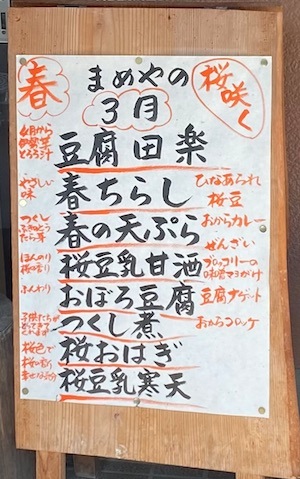 春
まめやの
3月
桜咲く
豆腐田楽
春ちらし
春の天ぷら
桜豆乳甘酒
おぼろ豆腐
つくし煮
桜おはぎ
桜豆乳寒天
4月から
伊勢芋
とろろ汁
やさしい
味
つくし
ふきのとう
たら芽
ほんのり
桜の香り
ふんわり
子供たちが
とってきて
くれます
桜色で
幸せな気分
ひなあられ
桜豆
おからカレー
ぜんざい
ブロッコリーの
味噌マヨがけ
豆腐ナゲット
おからコロッケ